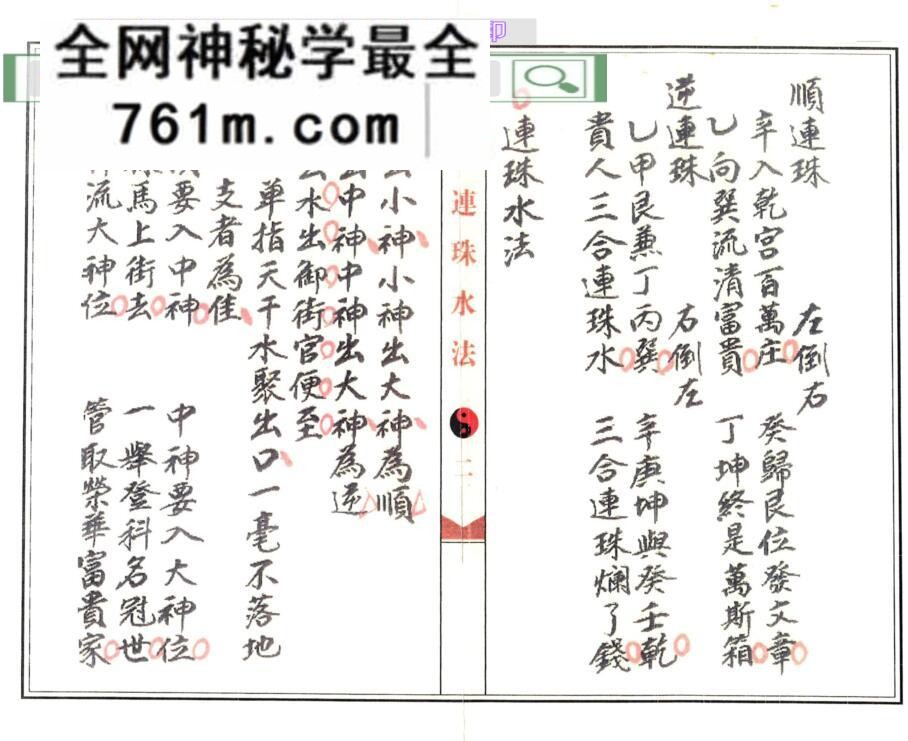 全网神秘学最全
761m.com
順連珠 左倒右
辛入乾宮百萬庄 癸歸艮位發文章
乙向巽流清富貴 丁坤終是萬斯箱
逆連珠 右倒左
乙甲艮兼丁丙巽 辛庚坤與癸壬乾
貴人三合連珠水 三合連珠爛了錢
連珠水法
連珠水法 二
小神小神出大神為順
中神中神出大神為逆
水出御街官便至
單指天干水聚出口一毫不落地
支者為佳
要入中神 中神要入大神位
馬上街去 一舉登科名冠世
流大神位 管取榮華富貴家